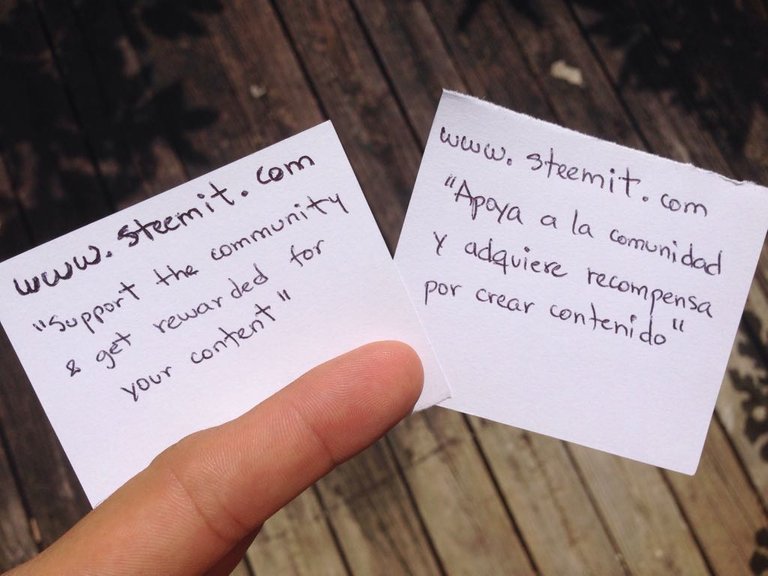 www.steemit.com
"Support the community
& get rewarded for
your content"
www.steemit.com
"Apoya a la comunidad
y adquiere recompensa
por crear contenido"